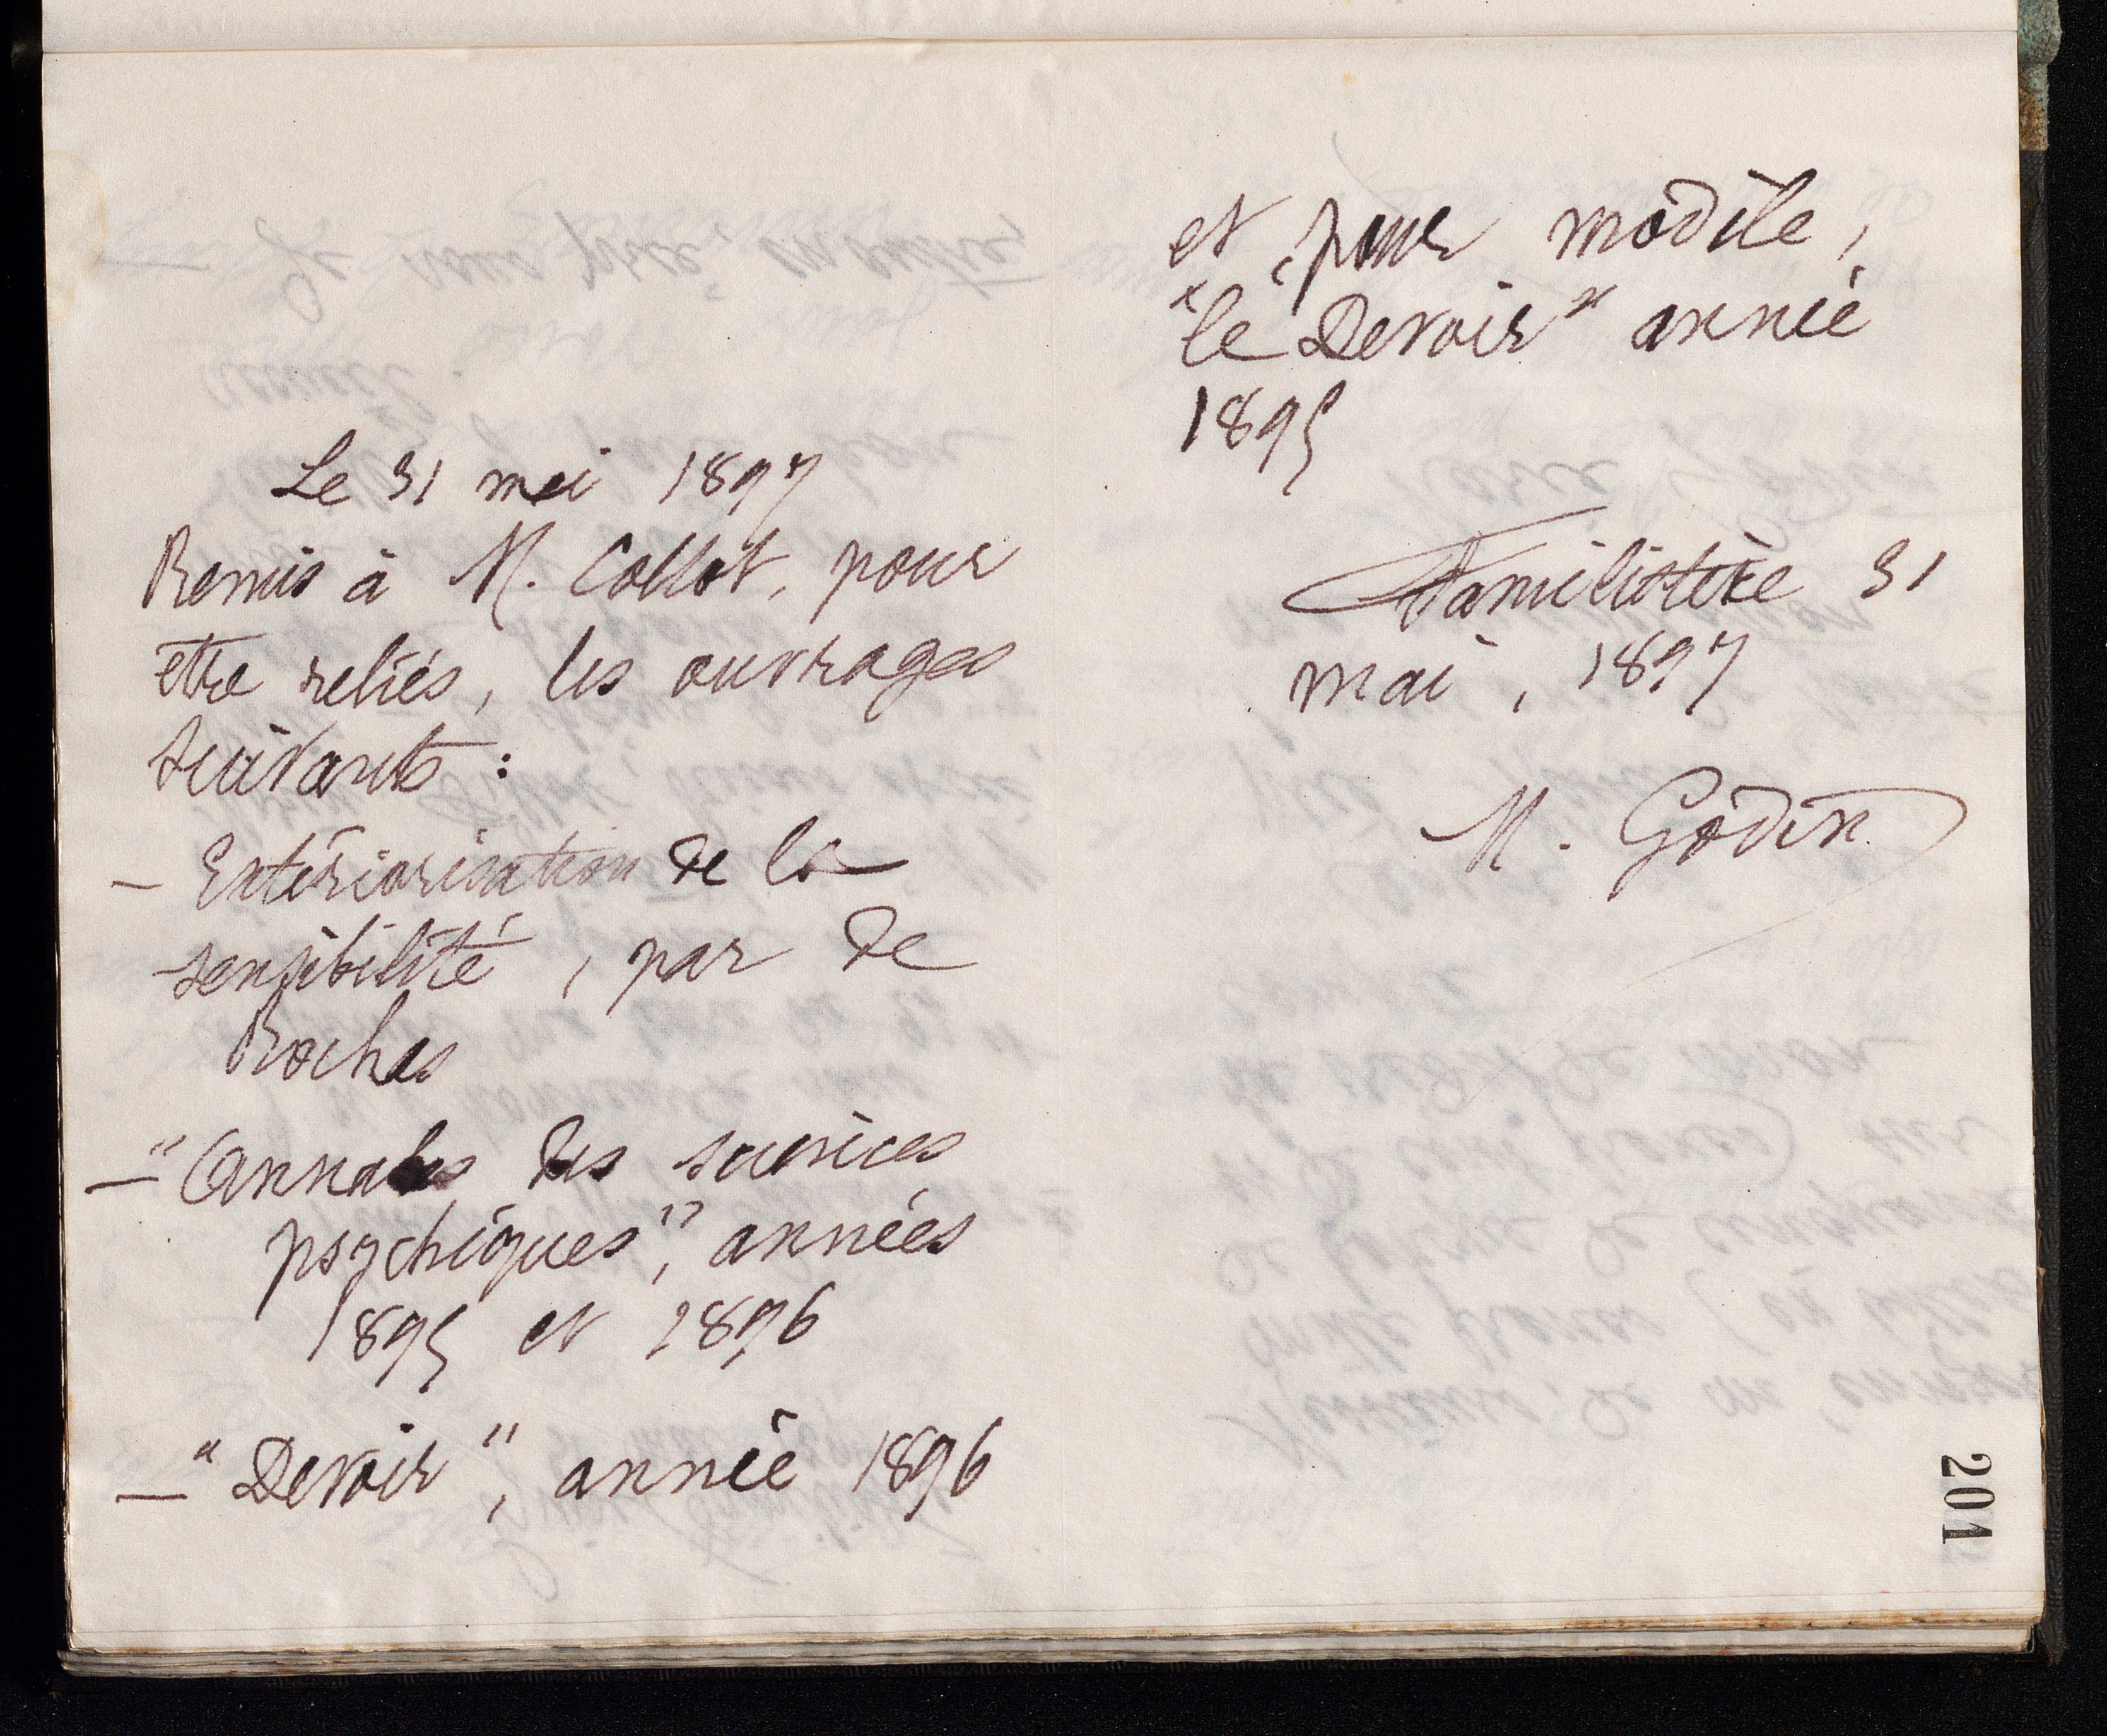 Le 31 mai 1897
Remis à M. Collot, pour
être reliés, les ouvrages
suivants :
— Extériorisation de la
sensibilité, par de
Rochas
— "Annales des sciences
psychiques", années
1895 et 1896
— "Devoir", année 1896
et, pour modèle,
"le Devoir" année
1895
Familistère 31
mai, 1897
M. Godin
201